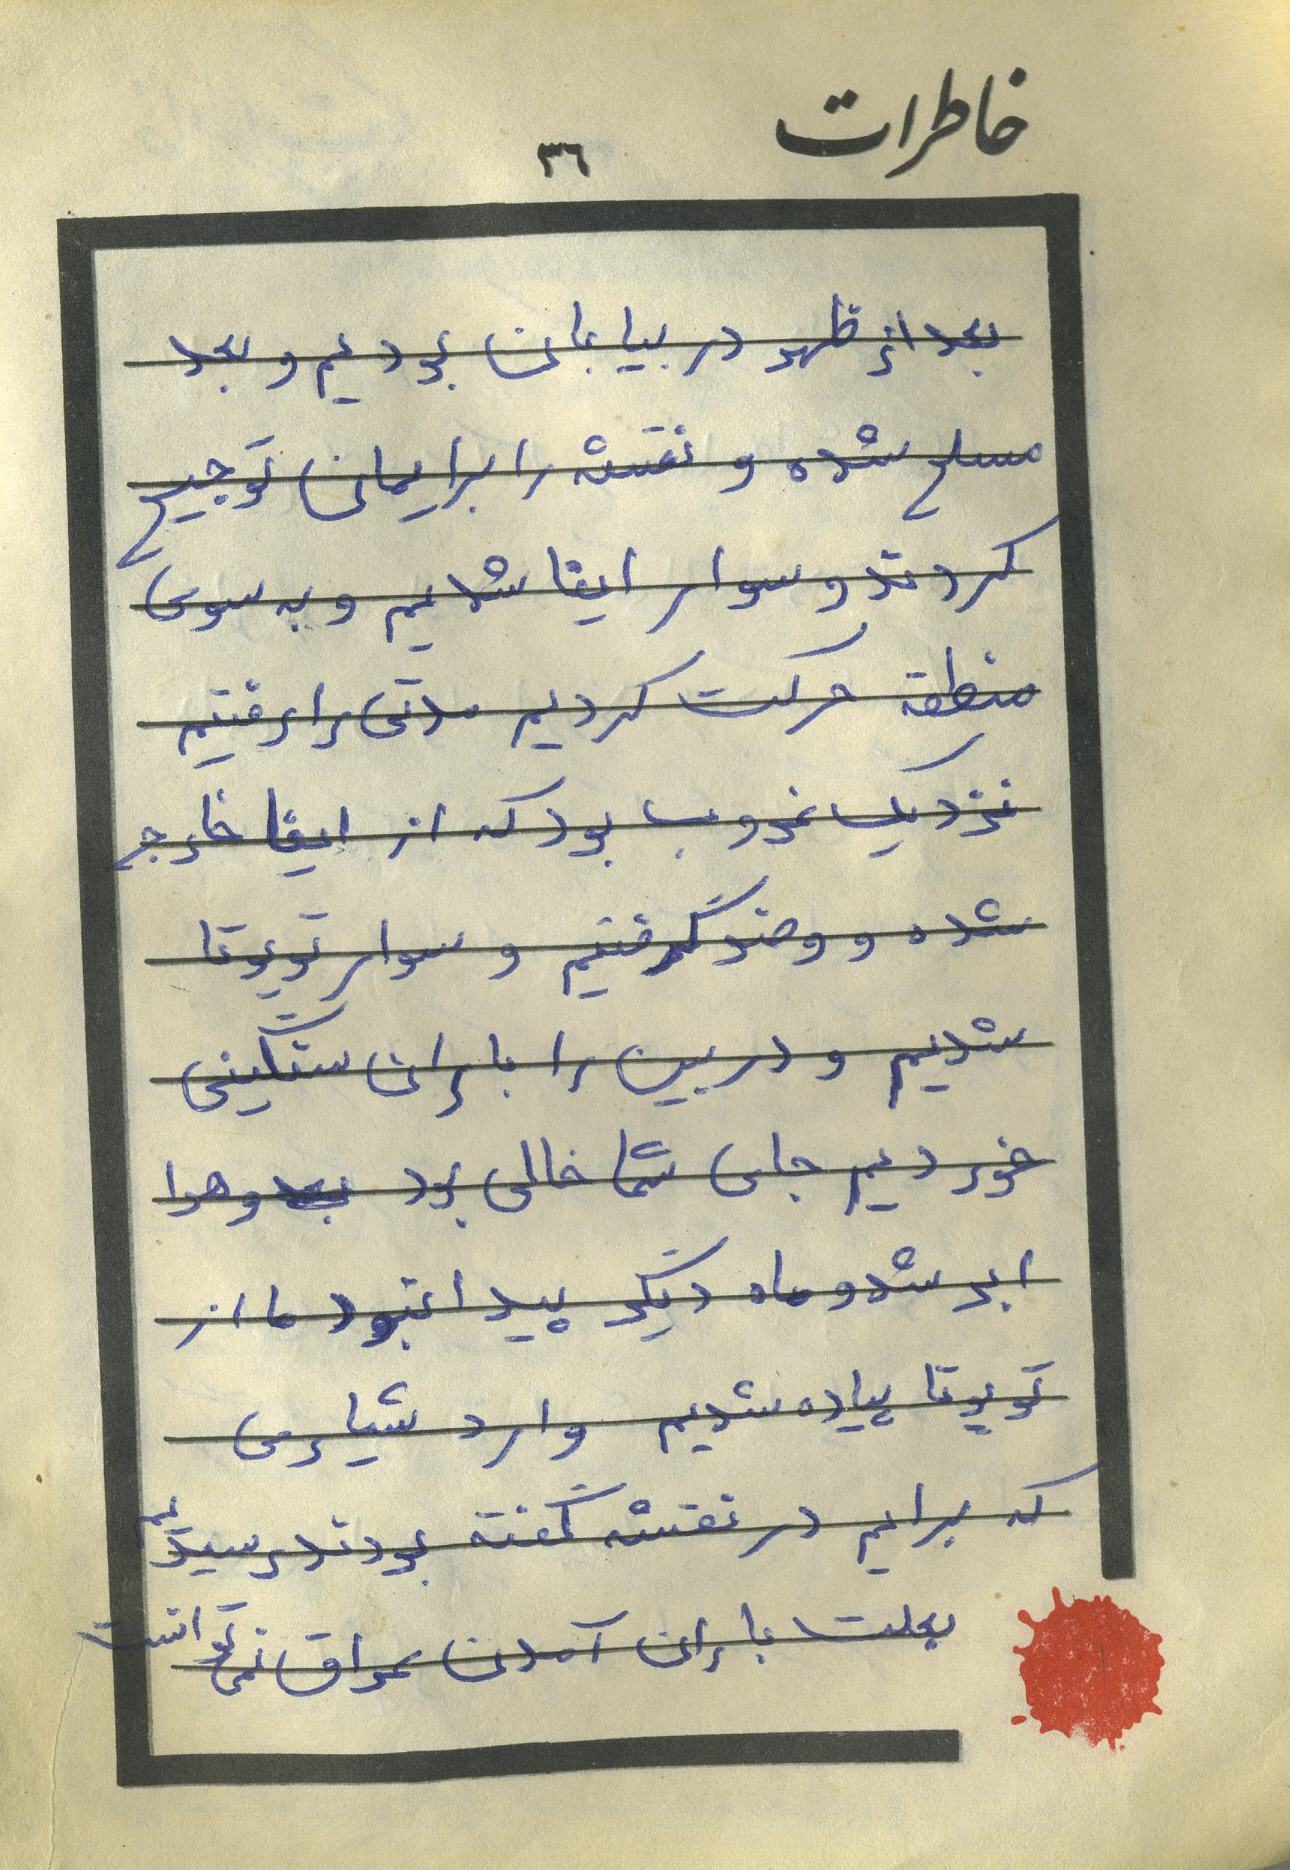 خاطرات
۳۶
بعد از ظهر در بیابان بودیم و بعد
مسلح شده و نقشه را برایمان توجیح
کردند و سوار ایفا شدیم و به سوی
منطقه حرکت کردیم مدتی راه رفتیم
نزدیک غروب بود که از ایفا خارج
شده و وضو گرفتیم و سوار تویوتا
شدیم و در بین را باران سنگینی
خوردیم جای شما خالی بود و هوا
ابر شد و ماه دیگر پیدا نبود ما از
تویوتا پیاده شدیم وارد شیاری
که برایم در نقشه گفته بودند رسیدیم
بعلت باران آمدن عراق نمی توانست